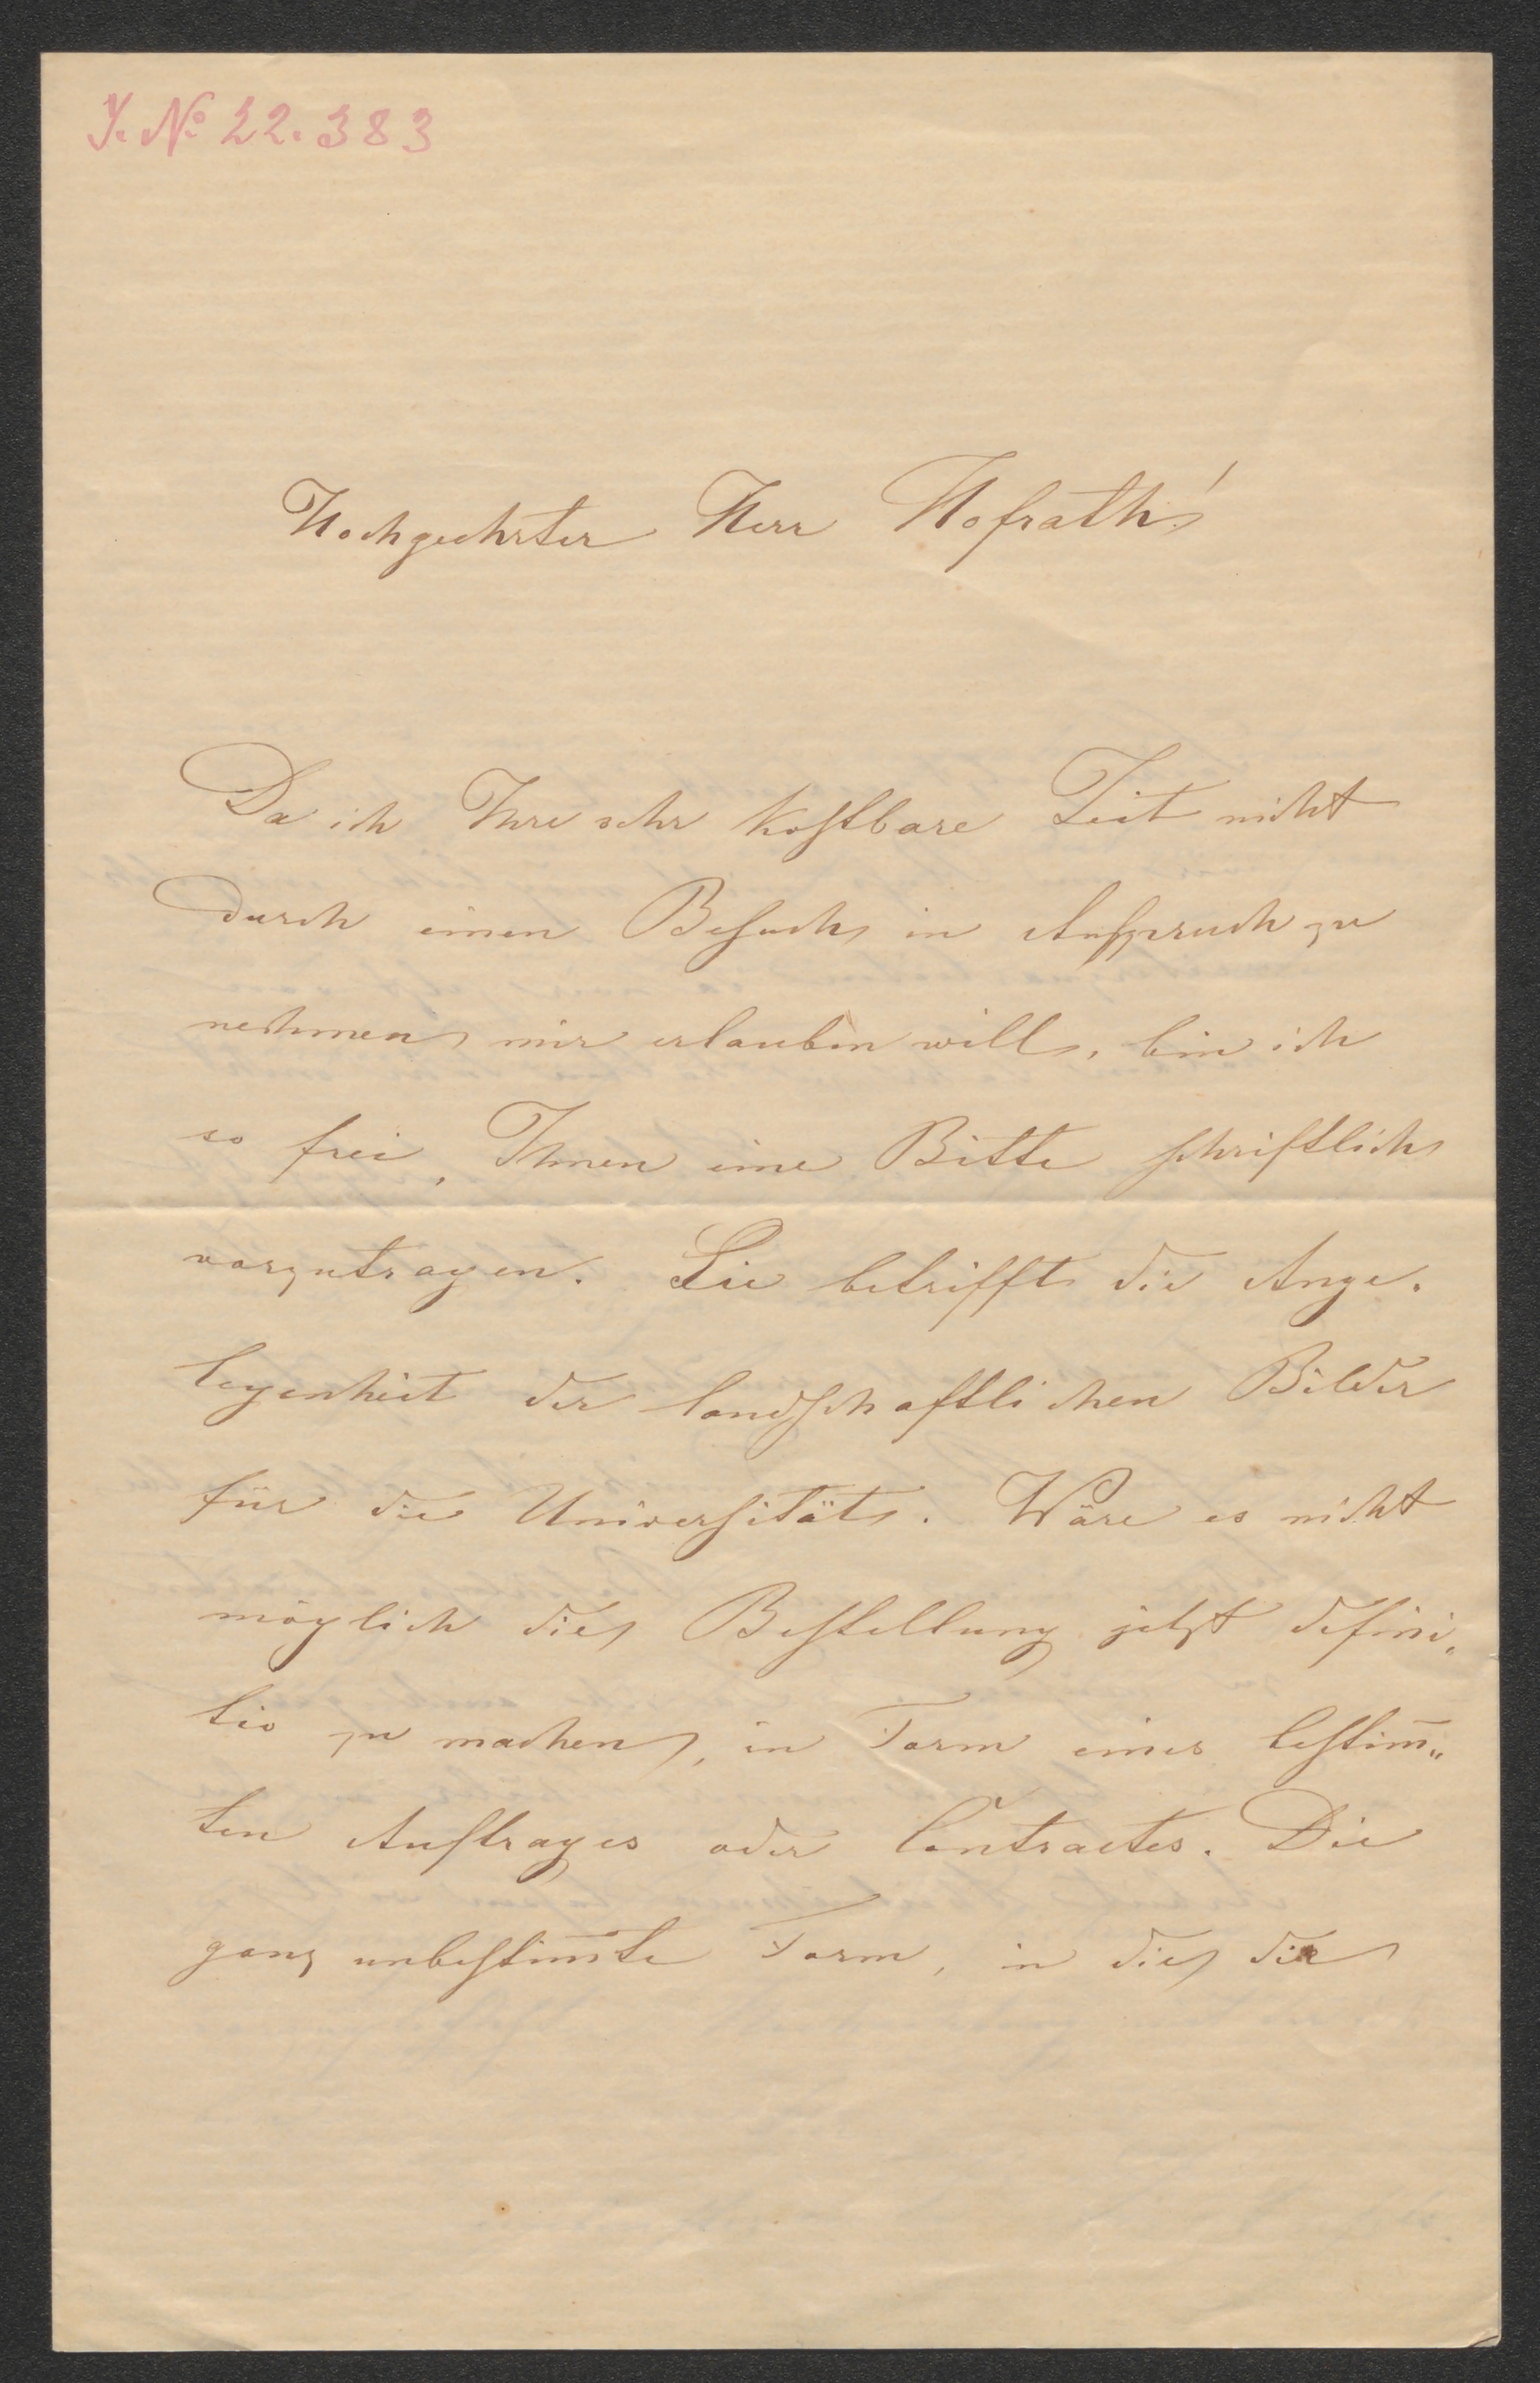 J. No 22.383
Hochgeehrter Herr Hofrath!
Da ich Ihre sehr kostbare Zeit nicht
durch einen Besuch in Anspruch zu
nehmen mir erlauben will, bin ich
so frei, Ihnen eine Bitte schriftlich
vorzutragen. Sie betrifft die Ange-
legenheit der landschaftlichen Bilder
für die Universität. Wäre es nicht
möglich die Bestellung jetzt defini-
tiv zu machen, in Form eines bestim̅-
ten Auftrages oder Contractes. Die
ganz unbestim̅te Form, in die die